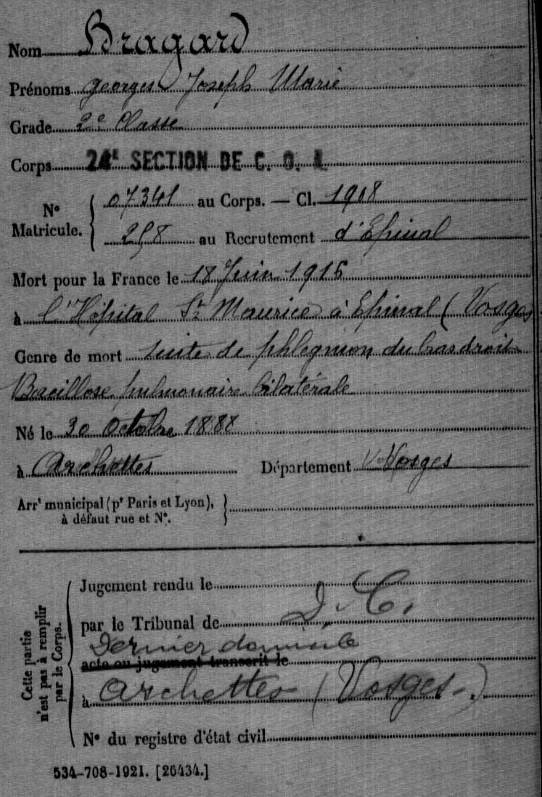 Nom Bragard
Prénoms georges Joseph Marie
Grade 2e Classe
Corps 24e SECTION DE C. O. A.
N° Matricule. { 07341 au Corps. — Cl. 1908
258 au Recrutement d'Epinal
Mort pour la France le 18 Juin 1916
à l'Hôpital St Maurice à Epinal (Vosges)
Genre de mort suite de phlegmon du bras droit
Bacillose pulmonaire bilatérale
Né le 30 octobre 1888
à Archettes Département Vosges
Arrt municipal (pr Paris et Lyon), }
à défaut rue et N°.
Cette partie n'est pas à remplir par le Corps.
Jugement rendu le
par le Tribunal de D. C.
Dernier domicile
acte ou jugement transcrit le
à Archettes (Vosges.)
N° du registre d'état civil
534-708-1921. [26434.]